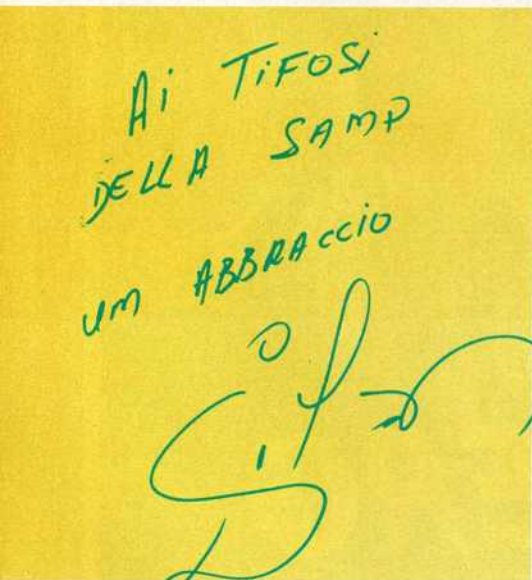 Ai TiFOSi
DELLA SAMP
um ABBRACCIO